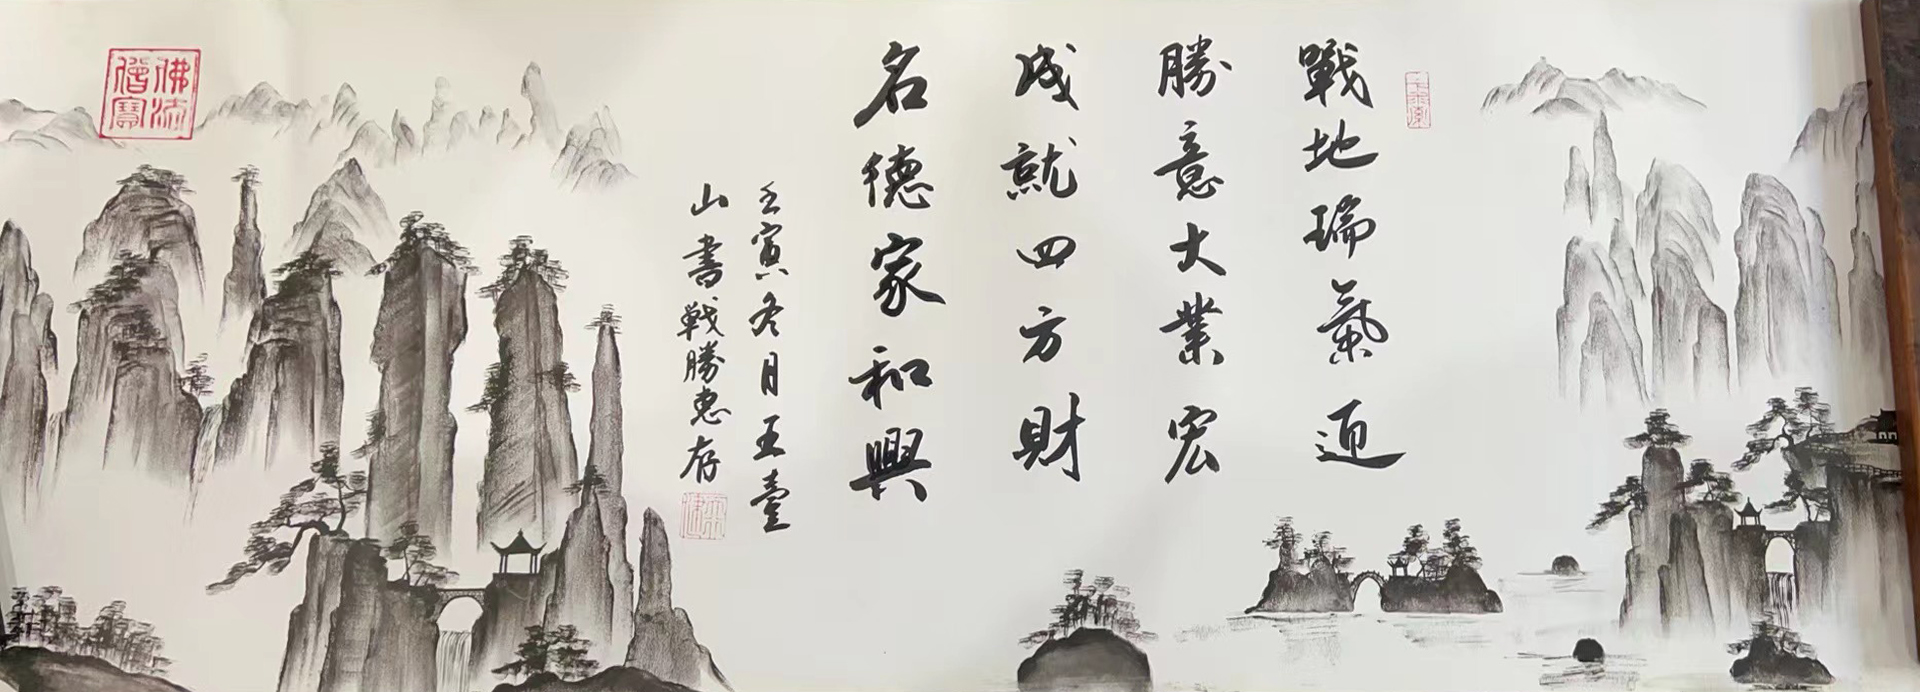 戰地瑞氣迎
勝意大業宏
成就四方財
名德家和興
壬寅冬月五臺
山書戰勝惠存
佛法
僧寶